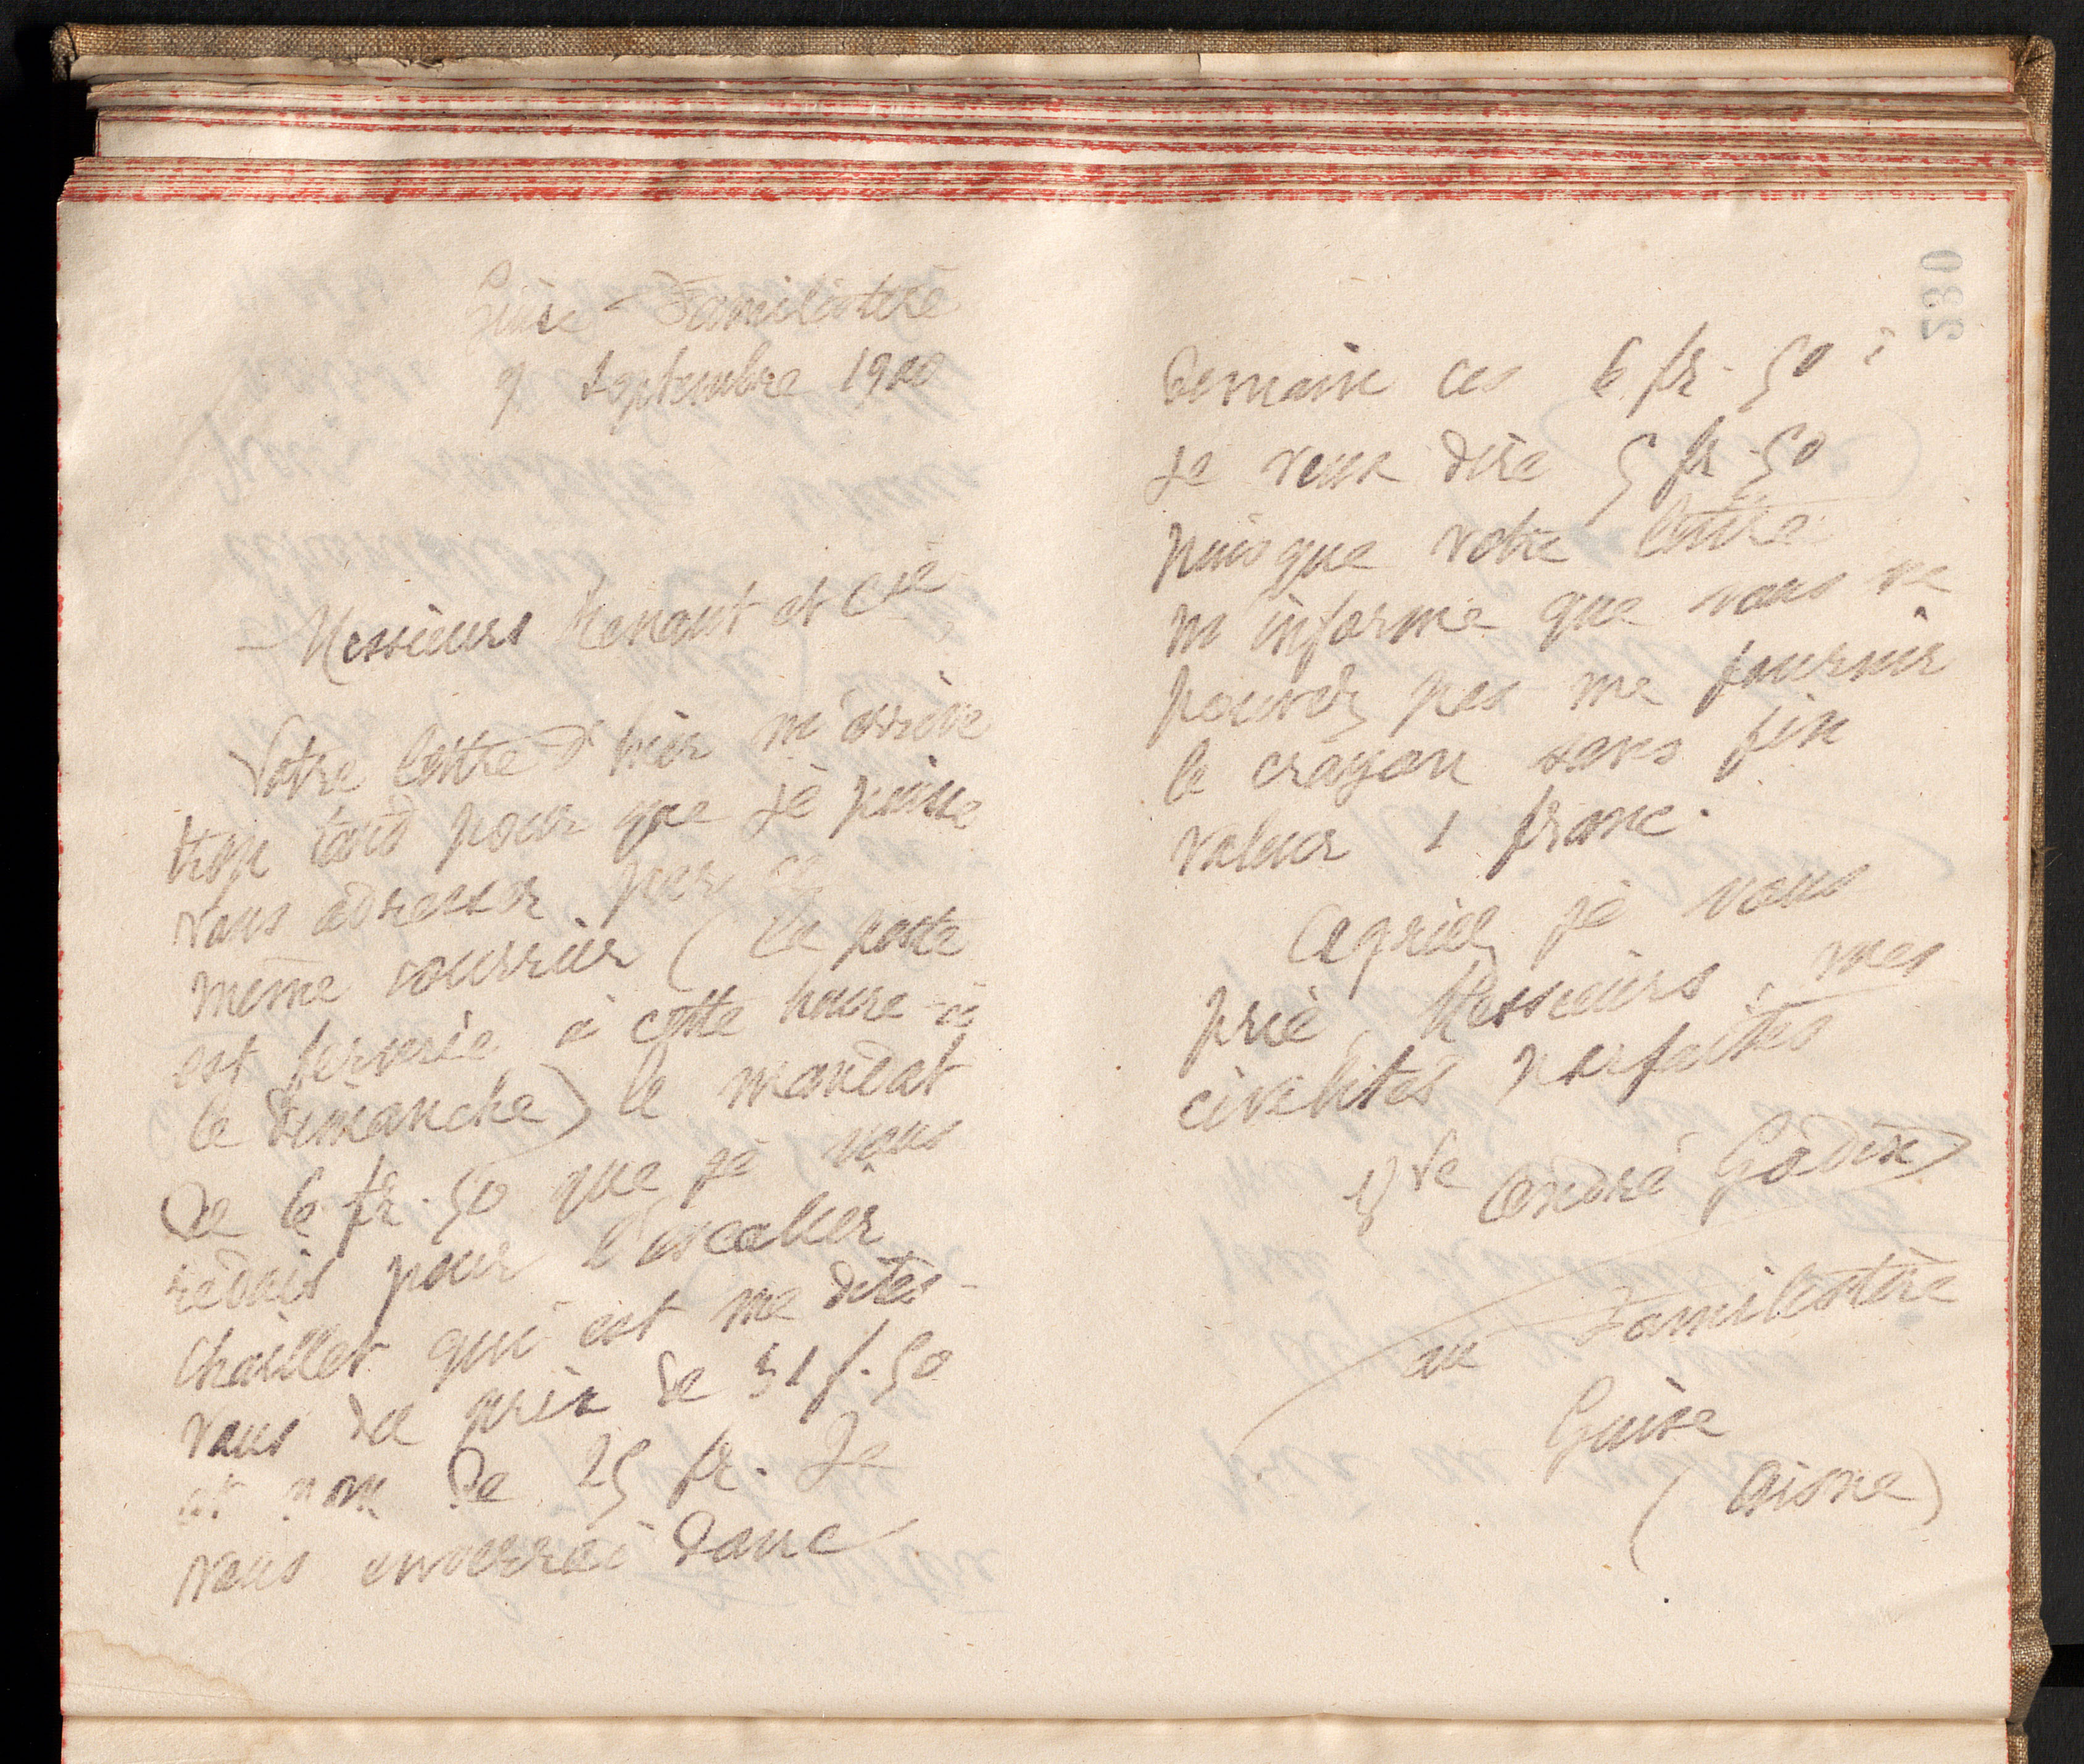 Guise - Familistère
9 septembre 1900
Messieurs Menant et Cie
Votre lettre d'hier m'arrive
trop tard pour que je puisse
vous adresser par ce
même courrier (la poste
est fermée à cette heure-ci
le dimanche) le mandat
de 6 fr. 50 que je vous
redois pour l'escalier
Chaillet qui est me dites-
vous de prix de 31 f. 50
et non de 25 fr. Je
vous enverrai donc
demain ces 6 fr. 50 :
je veux dire 5 fr. 50
puisque votre lettre
m'informe que vous ne
pouvez pas me fournir
le crayon sans fin
valeur 1 franc.
Agréez je vous
prie, Messieurs, mes
civilités parfaites
Vve André Godin
au Familistère
Guise
(Aisne)
230